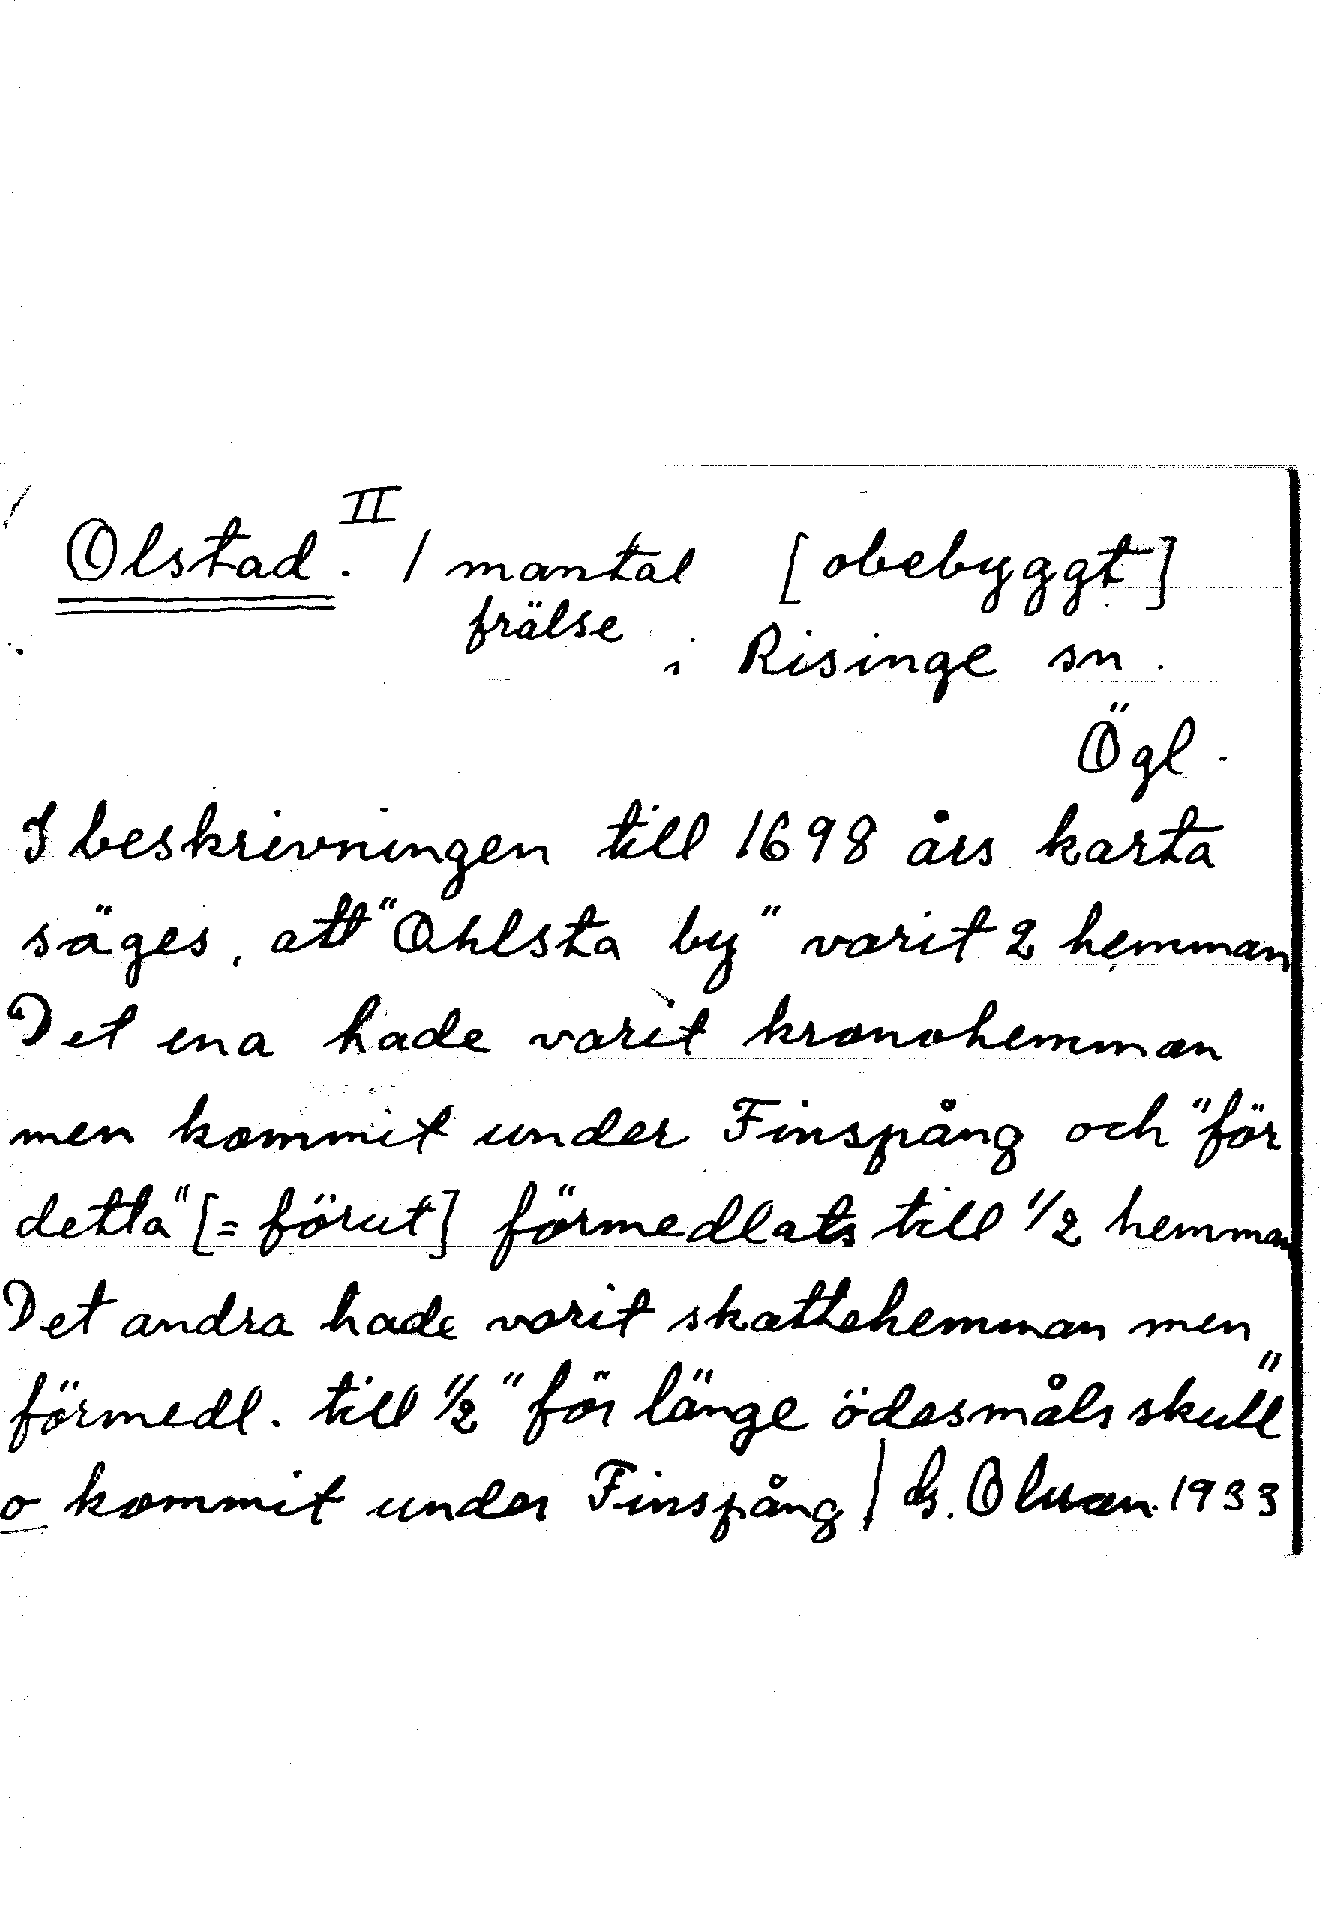 Olstad. II 1 mantal [obebyggt]
frälse
i Risinge sn.
Ögl.
I beskrivningen till 1698 års karta
säges, att "Ohlsta by" varit 2 hemman
Det ena hade varit kronohemman
men kommit under Finspång och "för
detta" [= förut] förmedlats till 1/2 hemman
Det andra hade varit skattehemman men
förmedl. till 1/2 "för länge ödesmåls skull"
o kommit under Finspång / G. 1933